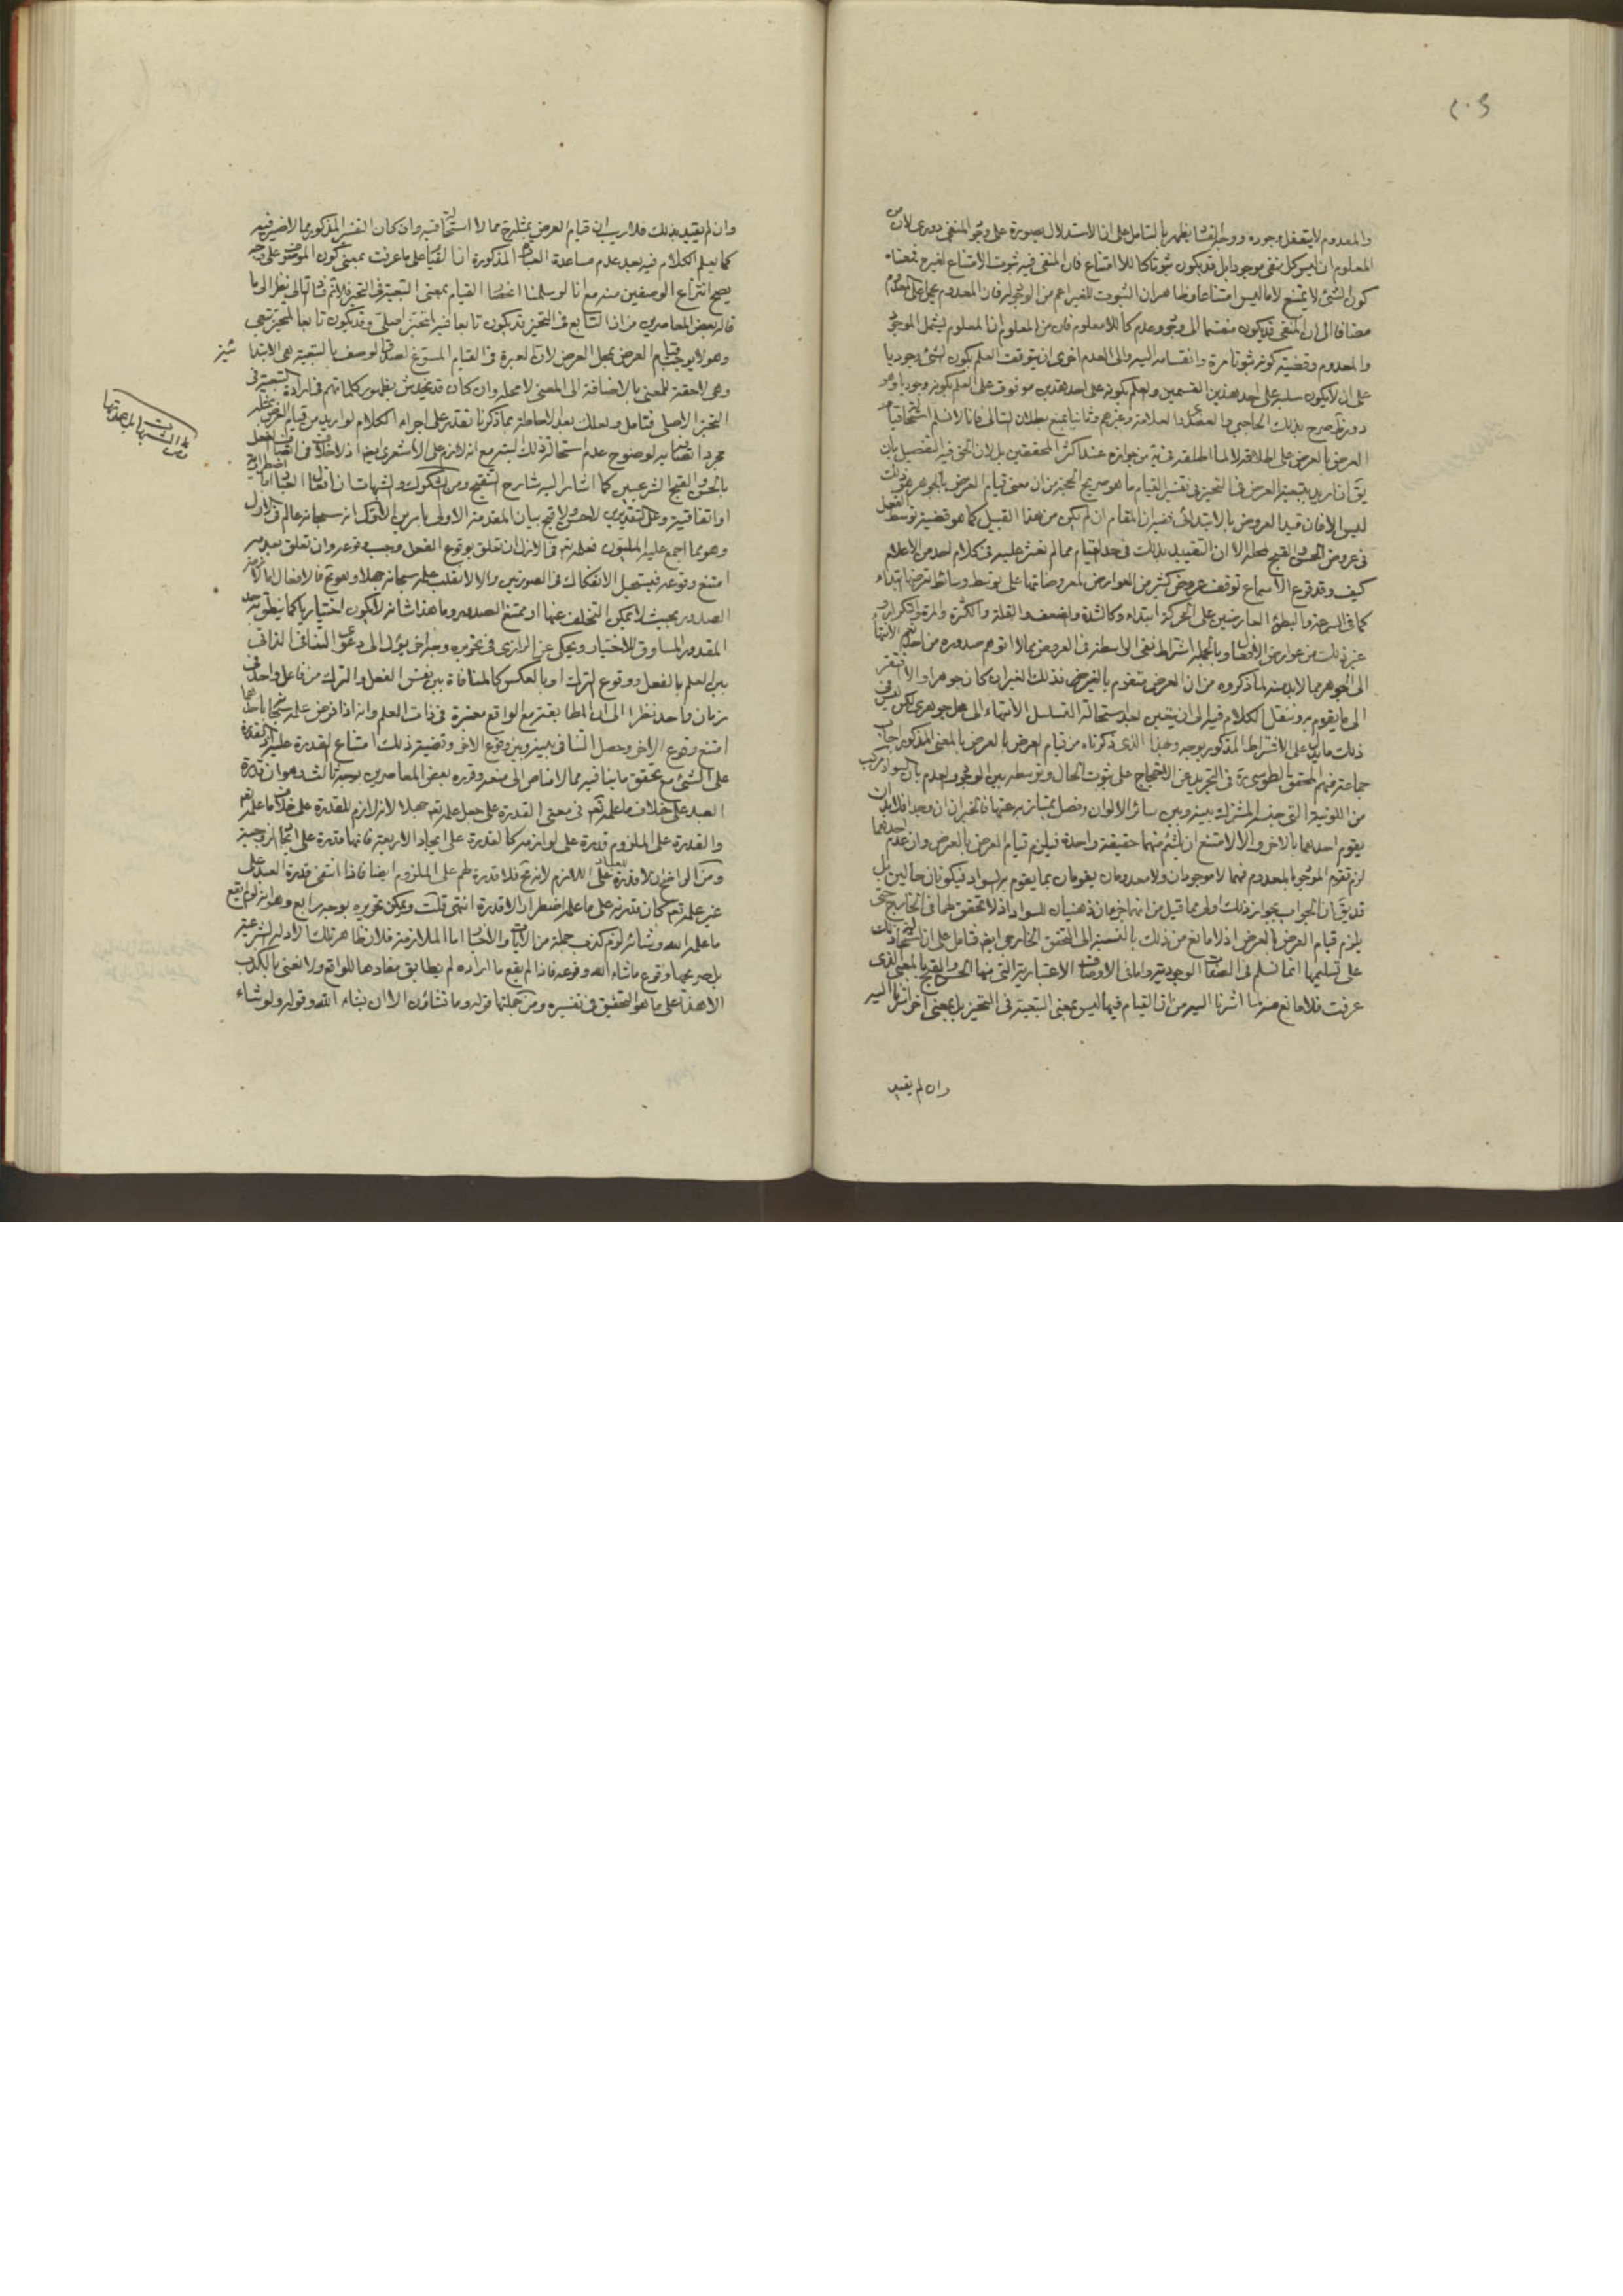 ٢٠٥
والمعدوم لا يتعقل وجوده ووجه الفساد يظهر بالتأمل على ان الاستدلال بصورة على وجود المنفى دورى لان من
المعلوم ان ليس كل نفى موجودا بل قد يكون ثبوتا كاللاامتناع فان المنفى فيه ثبوت الامتناع لغيره بمعناه
كون الشئ لا يمتنع لا ما ليس امتناعا وظاهر ان الثبوت للغير اعم من الوجود فان المعدوم يحمل على معدوم
مضافا الى ان المنفى قد يكون منقسما الى وجود وعدم كاللامعلوم فان من المعلوم ان المعلوم يشمل الموجود
والمعدوم وقضية كونه ثبوتا مرة وانقسامه اليه والى العدم اخرى ان يتوقف العلم بكون الشئ وجوديا
على ان لا يكون سلبه على احد هذين القسمين والعلم بكونه على احد هذين موقوف على العلم بكونه وجوديا وهو
دور وقد صرح بذلك الحاجبى والعضدى والعلامة وغيرهم وثانيا بمنع بطلان التالى فانا لا نسلم استحالة قيام
العرض بالعرض على اطلاقه لا لما اطلقه فى من جوازه عند اكثر المحققين بل لان الحق فيه التفصيل بان
يقال ان اريد تبعية العرض فى التحيز فى تفسير القيام ما هو صريح الحجة من ان معنى قيام العرض بالجوهر هو ذلك
ليس الا فان قيد العروض بالابتدائى ففيه ان المقام ان لم يكن من هذا القبيل كما هو قضية توسط الفعل
فى عروض الحسن والقبح لمحله الا ان التقييد بذلك فى حد القيام مما لم نعثر عليه فى كلام احد من الاعلام
كيف وقد قرع الاسماع توقف عروض كثير من العوارض لمعروضاتها على توسط وسائط تعرضها ابتداء
كما فى السرعة والبطؤ العارضين على الحركة ابتداء وكالشدة والضعف والقلة والكثرة والمرة والتكرار و
غير ذلك من عوارض الافعال وبالجملة اشتراط نفى الواسطة فى العروض مما لا اتوهم صدوره من احد نعم الانتهاء
الى الجوهر مما لابد منه لما ذكروه من ان العرض متقوم بالغير فذلك الغير ان كان جوهرا والا افتقر
الى ما يقوم به وننقل الكلام فيه الى ان يتعين بعد استحالة التسلسل الانتهاء الى محل جوهرى لكن ليس فى
ذلك ما يدل على الاشتراط المذكور بوجه وبهذا الذى ذكرناه من قيام العرض بالعرض بالمعنى المذكور اجاب
جماعة منهم المحقق الطوسى ره فى التجريد عن الاحتجاج على ثبوت الحال وتوسطه بين الموجود والعدم بان السواد مركب
من اللونية التى جنسه المشترك بينه وبين سائر الالوان وفصل يمتاز به عنها فالجزءان ان وجدا فلابد ان
يقوم احدهما بالاخر والا لامتنع ان يلتئم منهما حقيقة واحدة فيلزم قيام العرض بالعرض وان عدم احدهما
لزم تقوم الموجود بالمعدوم فهما لا موجودان ولا معدومان يقومان بما يقوم به السواد فيكونان حالين بل
قد يقال ان الجواب بجواز ذلك اولى مما قيل من انهما جزءان ذهنيان للسواد اذ لا تحقق لهما فى الخارج حتى
يلزم قيام العرض بالعرض اذ لا مانع من ذلك بالنسبة الى التحقق الخارجى ايضا فتأمل على ان استحالة ذلك
على تسليمها انما تسلم فى الصفات الوجودية واما فى الاوصاف الاعتبارية التى منها الحسن والقبح بالمعنى الذى
عرفت فلا مانع منه لما اشرنا اليه من ان القيام فيها ليس بمعنى التبعية فى التحيز بل بمعنى اخر اشرنا اليه
وان لم يقيد
وان لم يقيد بذلك فلا ريب ان قيام العرض بمثله ح مما لا استحالة فيه وان كان التفسير المذكور مما لا ضير فيه
كما يعلم الكلام فيه بعد عدم مساعدة العبارة المذكورة اذ القيام على ما عرفت بمعنى كون الموصوف على وجه
يصح انتزاع الوصفين منه مع انا لو سلمنا ايضا القيام بمعنى التبعية فى التحيز فلا تم فساد التالى نظرا الى ما
قاله بعض المعاصرين من ان التابع فى التحيز قد يكون تابعا فيه لمتحيز اصلى وقد يكون تابعا لمتحيز تبعى
وهو لا يوجب قيام العرض بمحل العرض لان العبرة فى القيام المسوغ لصدق الوصف بالتبعية هى الابتدائية
وهى لاحقة للمعنى بالاضافة الى المعنى لا محله وان كان قد يخدش بظهور كلماتهم فى ارادة التبعية فى
التحيز الاصلى فتأمل ولعلك بعد الاحاطة بما ذكرنا تقتدر على اجراء الكلام لو اريد من قيام العرض بمثله
مجرد اتصافه به لوضوح عدم استحالة ذلك البتة مع انه لازم على الاشعرى ايضا اذ لا خلاف فى اتصاف الفعل
بالحسن والقبح الشرعيين كما اشار اليه شارح التنقيح ومن الشكوك والشبهات ان افعال العباد اما اضطرارية
او اتفاقية وعلى التقديرين لا حسن ولا قبح بيان المقدمة الاولى بامرين الاول انه سبحانه عالم فى الازل
وهو مما اجمع عليه المليون فعلمه تم فى الازل ان تعلق بوقوع الفعل وجب وقوعه وان تعلق بعدمه
امتنع وقوعه فيستحيل الانفكاك فى الصورتين والا لانقلب علمه سبحانه جهلا وهو مح فالافعال اما لازمة
الصدور بحيث لا يمكن التخلف عنها او ممتنع الصدور وما هذا شأنه لا يكون اختياريا كما ينطق به حد
المقدور المساوق للاختيار ويحكى عن الرازى فى تحريره وجه اخر يؤل الى دعوى التنافى الذاتى
بين العلم بالفعل ووقوع الترك او بالعكس كالمنافاة بين نفس الفعل والترك من فاعل واحد فى
زمان واحد نظرا الى ان المطابقة مع الواقع معتبرة فى ذات العلم وانه اذا فرض علمه سبحانه باحدهما
امتنع وقوع الاخر وحصل التنافى بينه وبين وقوع الاخر وقضية ذلك امتناع القدرة عليه اذ القدرة
على الشئ مع تحقق ما ينافيه مما لا مناص الى منعه وقرره بعض المعاصرين بوجه ثالث وهو ان قدرة
العبد على خلاف ما علمه تعم فى معنى القدرة على جعل علمه تعم جهلا لانه لازم للقدرة على خلاف ما علمه تعم
والقدرة على الملزوم قدرة على لوازمه كالقدرة على ايجاد الاربعة فانها قدرة على ايجاد الزوجية
ومن الواضح ان لا قدرة للعباد على اللازم لانه مح فلا قدرة لهم على الملزوم ايضا فاذا انتفى قدرة العبد على
غير علمه تعم كان قدرته على ما علم اضطرارا لا قدرة انتهى قلت ويمكن تحريره بوجه رابع وهو انه لو لم يقع
ما علمه الله وشائه لزم كذب جملة من الايات والاخبار اما الملازمة فلان ظاهر تلك الادلة الشرعية
بل صريحها وقوع ما شاء الله وقوعه فاذا لم يقع ما اراده لم يطابق مفادها للواقع ولا نعنى بالكذب
الا هذا على ما هو التحقيق فى تفسيره ومن جملتها قوله وما تشاؤن الا ان يشاء الله وقوله ولو شاء